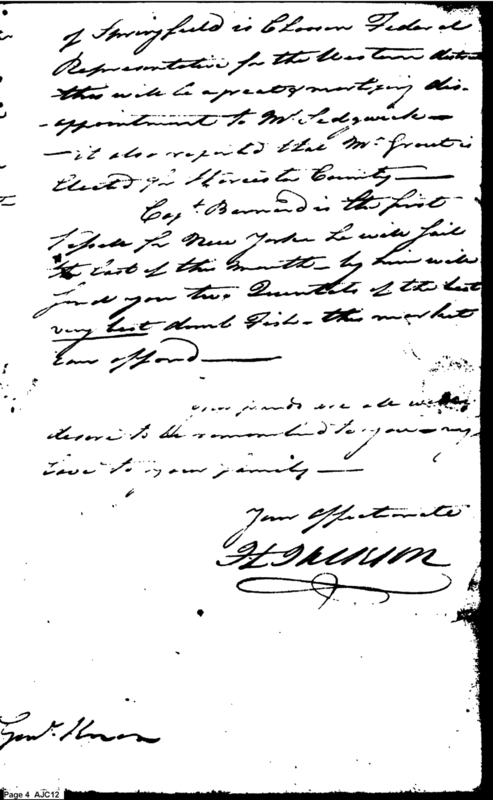 of Springfield is Chosen Federal
Representative for the Western district
this will be a great & mortifying dis-
-appointment to Mr. Sedgwick—
—it also reported that Mr. Grout is
Elected for Worcester County—
Capt. Barnard is the first
Vessel for New Yorke he will Sail
the last of this Month—by him will
send you two Quentals of the best
very best dumb Fish—this market
can afford—
your friends are all well
desire to be remembered to you—my
Love to your family—
Your affectionate
H JACKSON
Genl. Knox
Page 4 AJC12